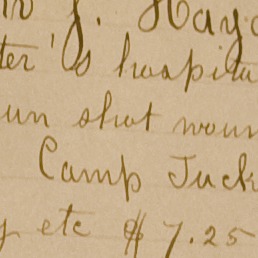 J. Hayd
ter's hospita
un shot woun
Camp Tuck
y etc $7.25